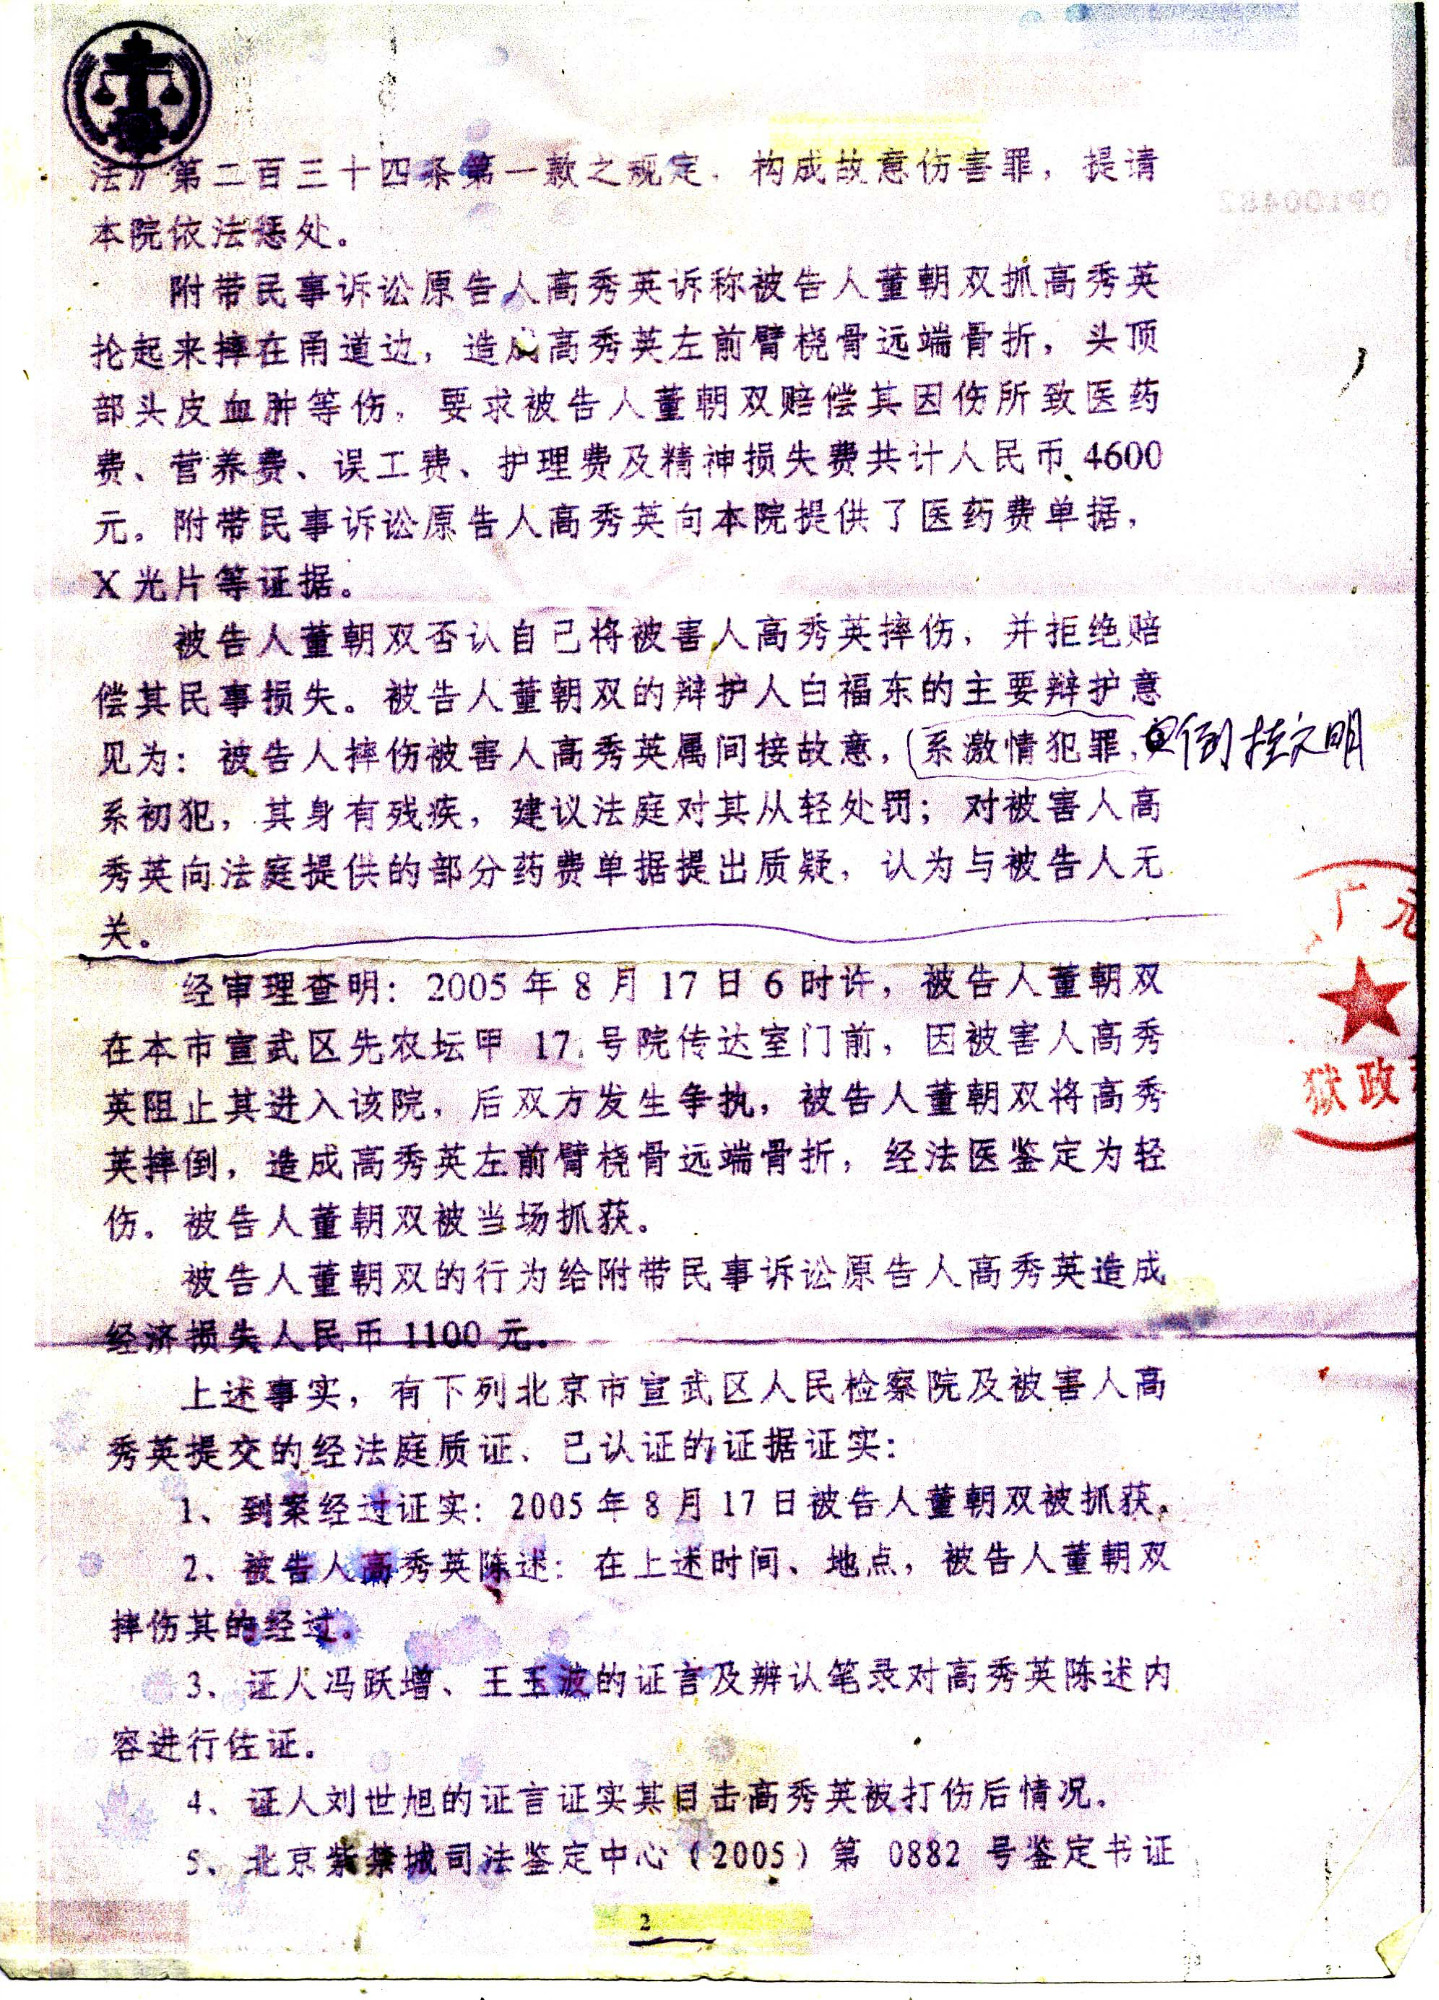 法》第二百三十四条第一款之规定，构成故意伤害罪，提请
本院依法惩处。
附带民事诉讼原告人高秀英诉称被告人董朝双抓高秀英
抡起来摔在甬道边，造成高秀英左前臂桡骨远端骨折，头顶
部头皮血肿等伤，要求被告人董朝双赔偿其因伤所致医药
费、营养费、误工费、护理费及精神损失费共计人民币 4600
元。附带民事诉讼原告人高秀英向本院提供了医药费单据，
X 光片等证据。
被告人董朝双否认自己将被害人高秀英摔伤，并拒绝赔
偿其民事损失。被告人董朝双的辩护人白福东的主要辩护意
见为：被告人摔伤被害人高秀英属间接故意，系激情犯罪，
倒挂文明
系初犯，其身有残疾，建议法庭对其从轻处罚；对被害人高
秀英向法庭提供的部分药费单据提出质疑，认为与被告人无
关。
广元
狱政
经审理查明：2005 年 8 月 17 日 6 时许，被告人董朝双
在本市宣武区先农坛甲 17 号院传达室门前，因被害人高秀
英阻止其进入该院，后双方发生争执，被告人董朝双将高秀
英摔倒，造成高秀英左前臂桡骨远端骨折，经法医鉴定为轻
伤。被告人董朝双被当场抓获。
被告人董朝双的行为给附带民事诉讼原告人高秀英造成
经济损失人民币 1100 元。
上述事实，有下列北京市宣武区人民检察院及被害人高
秀英提交的经法庭质证、已认证的证据证实：
1、到案经过证实：2005 年 8 月 17 日被告人董朝双被抓获。
2、被告人高秀英陈述：在上述时间、地点，被告人董朝双
摔伤其的经过。
3、证人冯跃增、王玉波的证言及辨认笔录对高秀英陈述内
容进行佐证。
4、证人刘世旭的证言证实其目击高秀英被打伤后情况。
5、北京紫禁城司法鉴定中心（2005）第 0882 号鉴定书证
2